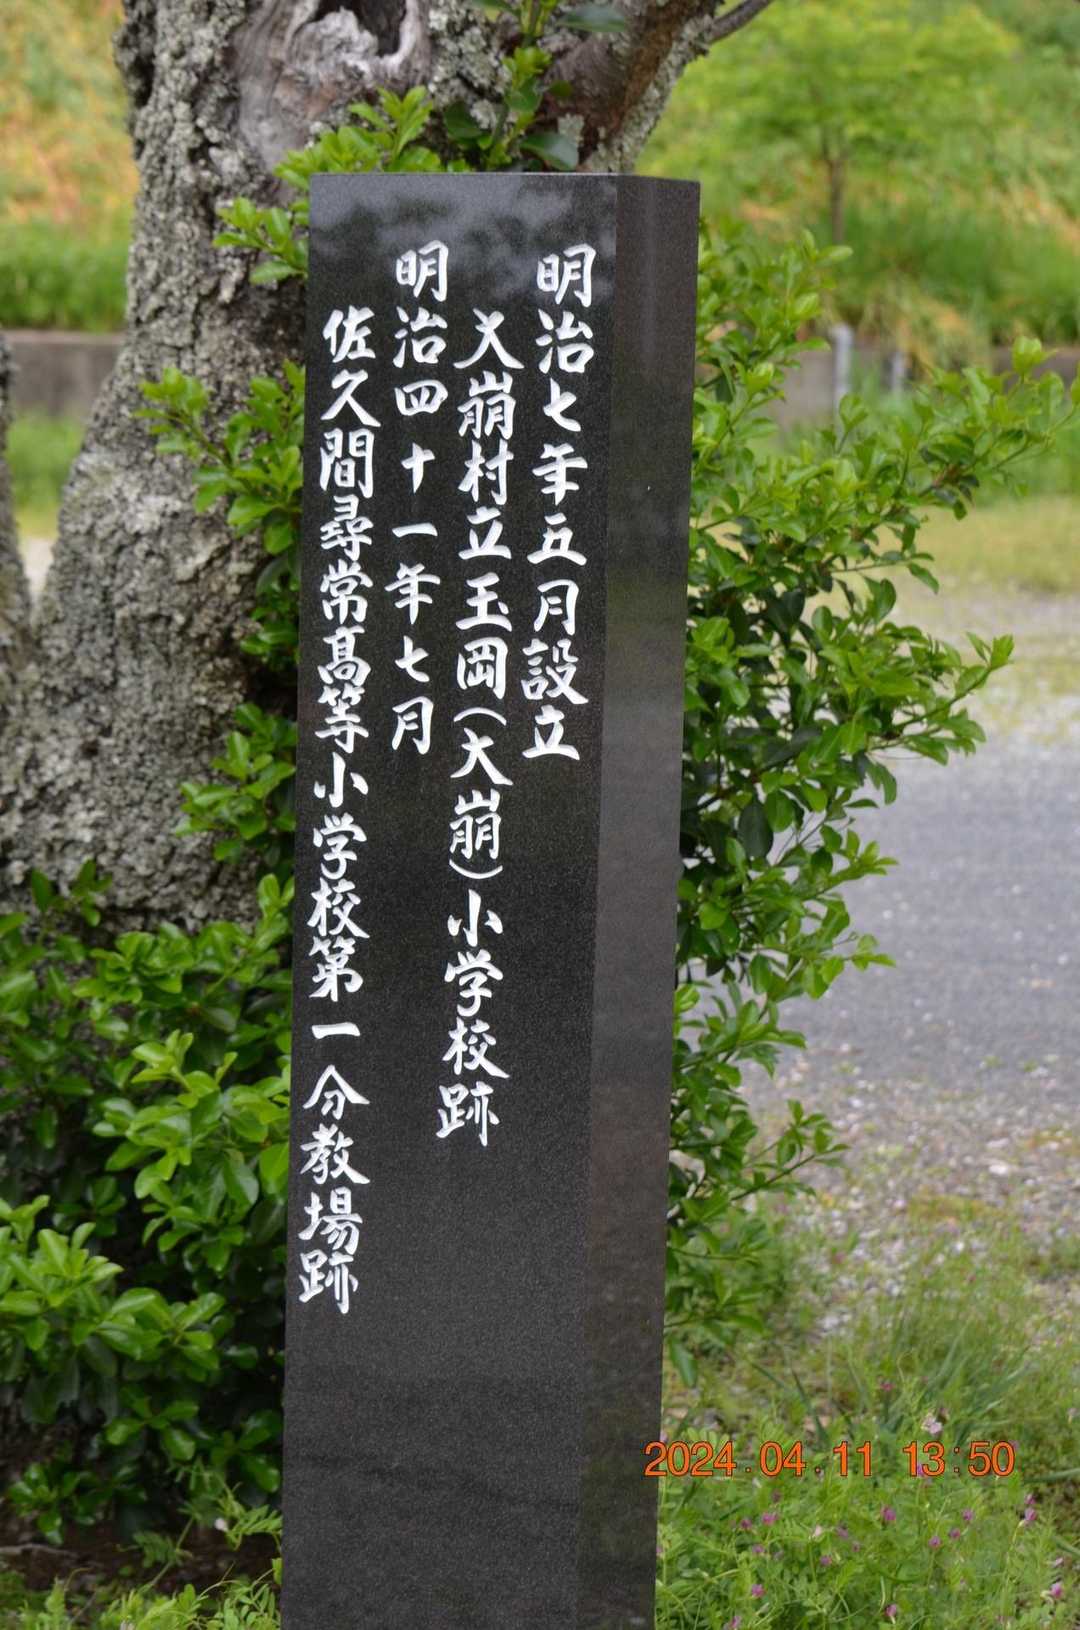 明治七年五月設立
大崩村立玉岡(大崩)小学校跡
明治四十一年七月
佐久間尋常髙等小学校第一分教場跡
2024.04.11 13:50